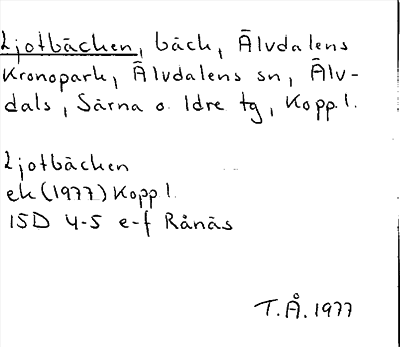 Ljotbäcken, bäck, Älvdalens
Kronopark, Älvdalens sn, Älv-
dals, Särna o. Idre tg, Kopp l.
Ljotbäcken
ek (1977) Kopp l.
15D 4-5 e-f Rånäs
T.Å. 1977